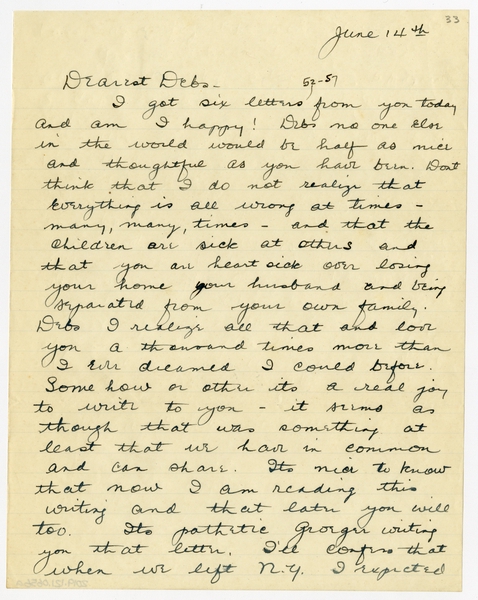 33
June 14th
Dearest Debs- 52-57
I got six letters from you today
and am I happy! Debs no one else
in the world would be half as nice
and thoughtful as you have been. Dont
think that I do not realize that
everything is all wrong at times -
many, many, times - and that the
children are sick at others and
that you are heart sick over losing
your home your husband and being
separated from your own family.
Debs I realize all that and love
you a thousand times more than
I ever dreamed I could before.
Some how or other its a real joy
to write to you - it seems as
though that was something at
least that we have in common
and can share. Its nice to know
that now I am reading this
writing and that later you will
too. Its pathetic Groeger writing
you that letter. I'll confess that
when we left N.Y. I expected